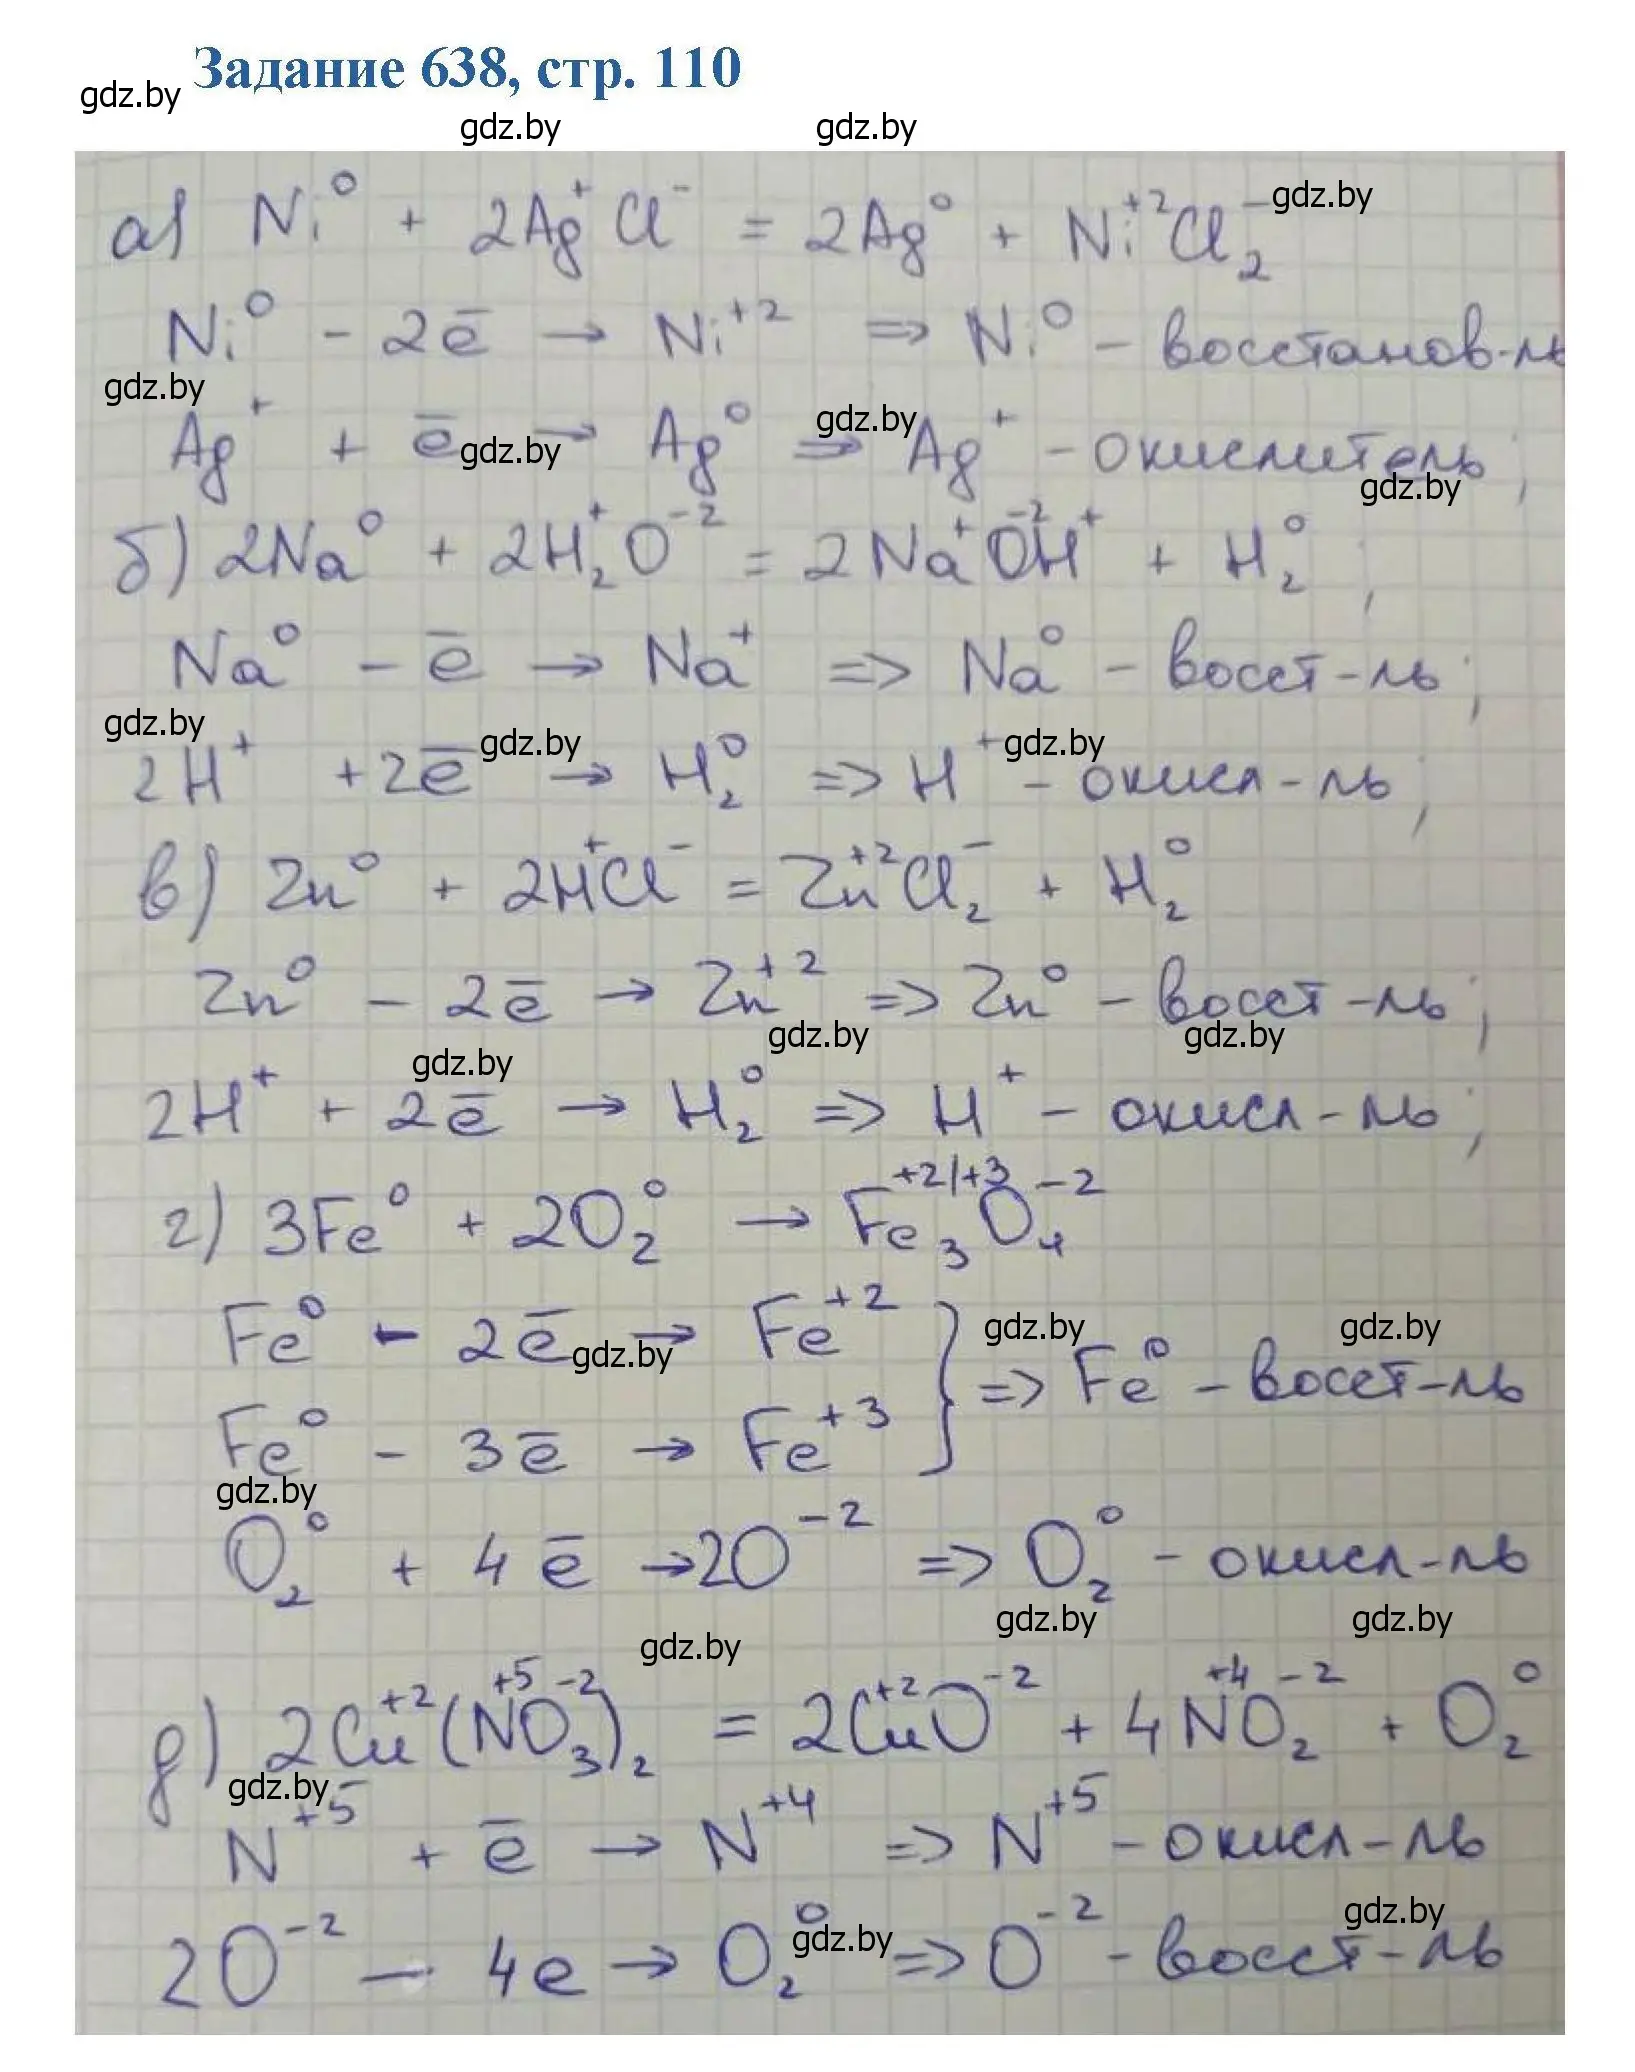 Задание 638, стр. 110
gdz.by
gdz.by gdz.by
а) Ni⁰ + 2Ag⁺Cl⁻ = 2Ag⁰ + Ni⁺²Cl₂⁻ gdz.by
Ni⁰ - 2ē → Ni⁺² => Ni⁰ - восстанов-ль
gdz.by gdz.by
Ag⁺ + ē → Ag⁰ => Ag⁺ - окислитель;
gdz.by gdz.by
б) 2Na⁰ + 2H₂⁺O⁻² = 2Na⁺O⁻²H⁺ + H₂⁰;
Na⁰ - ē → Na⁺ => Na⁰ - восст-ль;
gdz.by gdz.by gdz.by
2H⁺ + 2ē → H₂⁰ => H⁺ - окисл-ль;
в) Zn⁰ + 2H⁺Cl⁻ = Zn⁺²Cl₂⁻ + H₂⁰
Zn⁰ - 2ē → Zn⁺² => Zn⁰ - восст-ль;
gdz.by gdz.by gdz.by
2H⁺ + 2ē → H₂⁰ => H⁺ - окисл-ль;
г) 3Fe⁰ + 2O₂⁰ → Fe₃⁺²/⁺³O₄⁻²
Fe⁰ - 2ē → Fe⁺² } => Fe⁰ - восст-ль
gdz.by gdz.by gdz.by
Fe⁰ - 3ē → Fe⁺³
gdz.by
O₂⁰ + 4ē → 2O⁻² => O₂⁰ - окисл-ль
gdz.by gdz.by gdz.by
д) 2Cu⁺²(N⁺⁵O₃⁻²)₂ = 2Cu⁺²O⁻² + 4N⁺⁴O₂⁻² + O₂⁰
gdz.by
N⁺⁵ + ē → N⁺⁴ => N⁺⁵ - окисл-ль
gdz.by gdz.by
2O⁻² - 4e → O₂⁰ => O⁻² - восст-ль